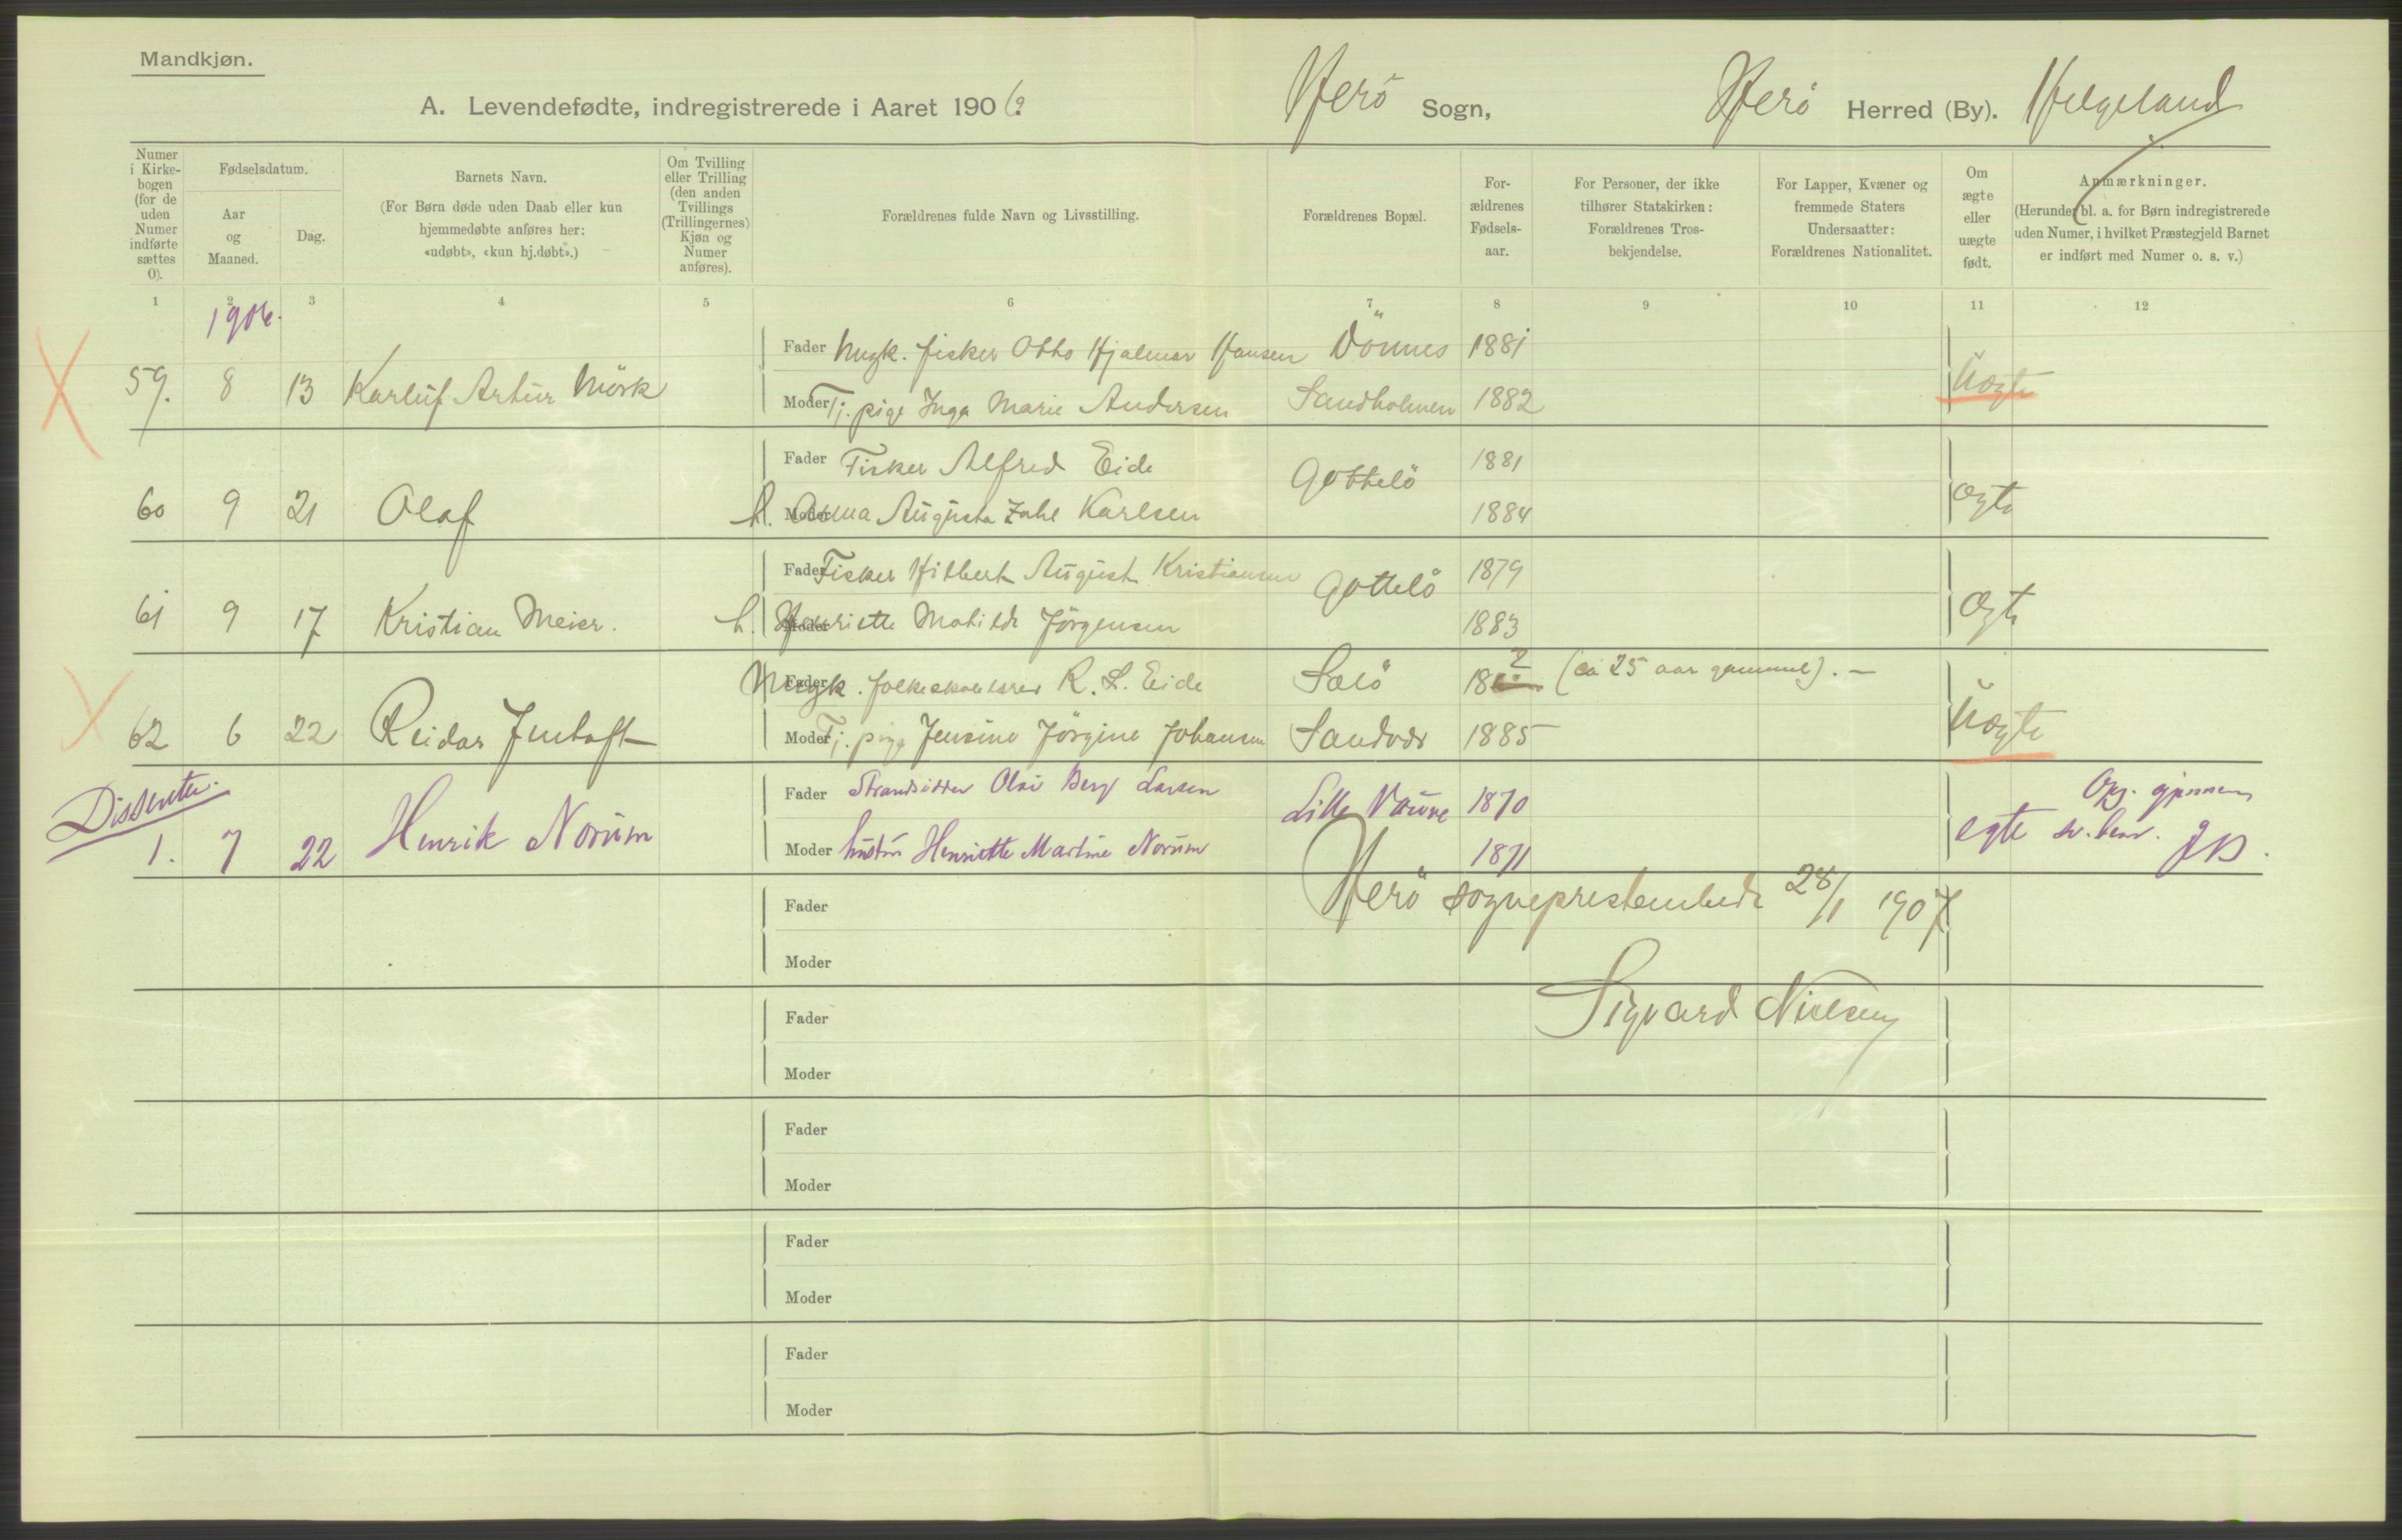 Mandkjøn.
A. Levendefødte, indregistrerede i Aaret 1906. Herö Sogn, Herö Herred (By). Helgeland
Numer i Kirkebogen (for de uden Numer indførte sættes 0).
Fødselsdatum.
Aar og Maaned.
Dag.
Barnets Navn.
(For Børn døde uden Daab eller kun hjemmedøbte anføres her: «udøbt», «kun hj.døbt».)
Om Tvilling eller Trilling (den anden Tvillings (Trillingernes) Kjøn og Numer anføres).
Forældrenes fulde Navn og Livsstilling.
Forældrenes Bopæl.
Forældrenes Fødselsaar.
For Personer, der ikke tilhører Statskirken: Forældrenes Trosbekjendelse.
For Lapper, Kvæner og fremmede Staters Undersaatter: Forældrenes Nationalitet.
Om ægte eller uægte født.
Anmærkninger.
(Herunder bl. a. for Børn indregistrerede uden Numer, i hvilket Præstegjeld Barnet er indført med Numer o. s. v.)
1 2 3 4 5 6 7 8 9 10 11 12
1906.
Fader Ungk. fisker Otto Hjalmar Hansen Dönnes 1881
59. 8 13 Karluf Artur Mörk Uægte
Moder Tj. pige Inga Marie Andersen Sandholmen 1882
Fader Fisker Alfred Eide Gottelö 1881
60 9 21 Olaf ægte
Moder h. Anna Augusta Zahl Karlsen 1884
Fader Fisker Hilbert August Kristiansen Gottelö 1879
61 9 17 Kristian Meier. ægte
Moder h. Henriette Matilde Jörgensen 1883
Fader Ungk. folkeskolelærer R. L. Eide Salö 18 ? (ca 25 aar gammel). —
62 6 22 Reidar Jentoft Uægte
Moder Tj. pige Jensine Jörgine Johansen Sandvær 1885
Dissenter.
Fader Strandsidder Olai Berg Larsen Lille 1870
1. 7 22 Henrik Norum egte
Moder hustru Henriette Martine Norum 1871
Herö sogneprestembede 28/1 1907
Sigvard Nielsen
Fader
Moder
Fader
Moder
Fader
Moder
Fader
Moder
Fader
Moder